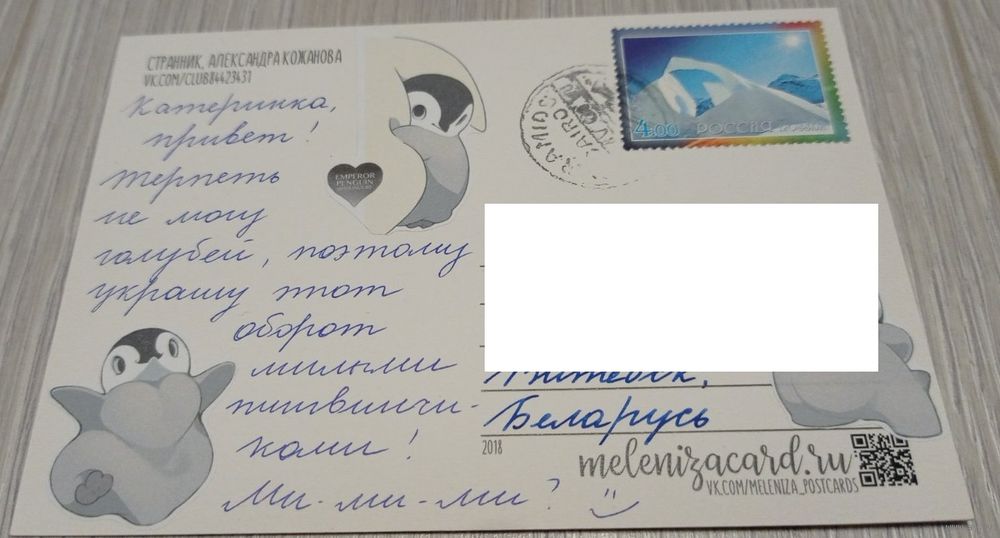 СТРАННИК, АЛЕКСАНДРА КОЖАНОВА
VK.COM/CLUB84423431
Катеринка,
привет!
Терпеть
не могу
голубей, поэтому
украшу этот
оборот
милыми
пингвинчи-
ками!
Ми-ми-ми?
EMPEROR
PENGUIN
4.00 РОССИЯ
Беларусь
2018
melenizacard.ru
VK.COM/MELENIZA_POSTCARDS